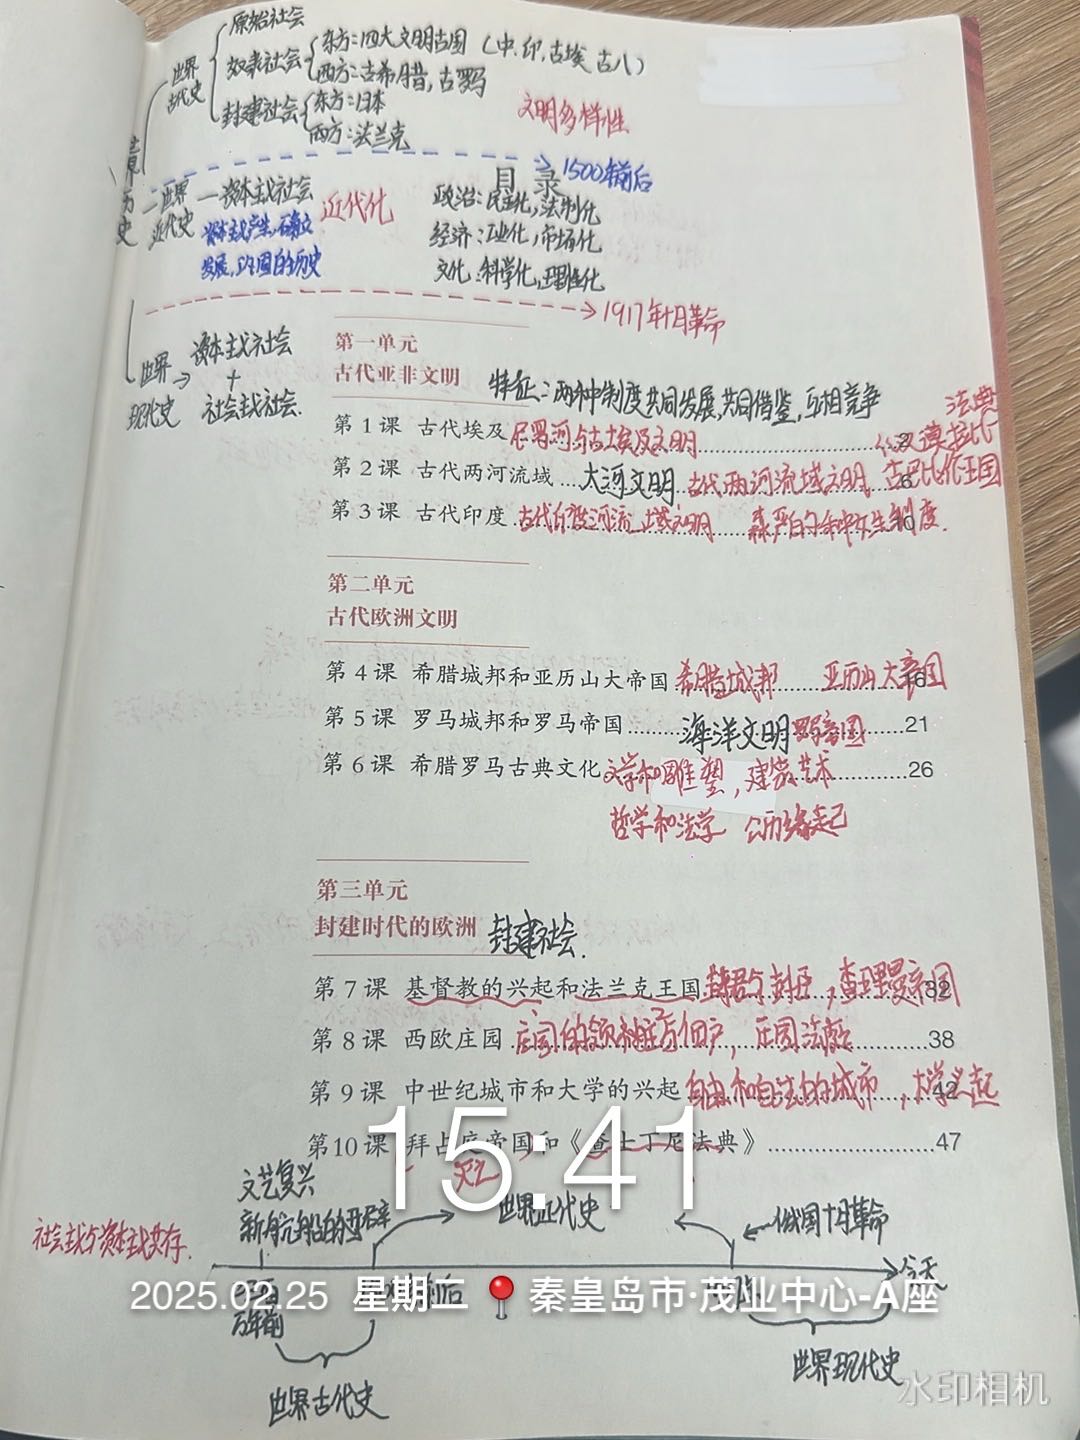 原始社会
世界古代史
奴隶社会
东方:四大文明古国(中.印,古埃 古八)
西方:古希腊,古罗马
封建社会
东方:日本
西方:法兰克
文明多样性
1500年前后
目 录
世界近代史
资本主义社会
近代化
资本主义产生,确立
发展,巩固的历史
政治:民主化,法制化
经济:工业化,市场化
文化:科学化,理性化
1917年十月革命
世界现代史
资本主义社会
+
社会主义社会.
第一单元
古代亚非文明
特征:两种制度共同发展,共同借鉴,互相竞争
第1课 古代埃及 尼罗河与古埃及文明
法典
《汉谟拉比
第2课 古代两河流域 大河文明 古代两河流域文明 古巴比伦王国
第3课 古代印度 古代印度河流域文明 森严的种姓制度.
第二单元
古代欧洲文明
第4课 希腊城邦和亚历山大帝国 希腊城邦 亚历山大帝国
第5课 罗马城邦和罗马帝国 海洋文明 罗马帝国 21
第6课 希腊罗马古典文化 文学和雕塑,建筑艺术 26
哲学和法学 公历缘起
第三单元
封建时代的欧洲 封建社会.
第7课 基督教的兴起和法兰克王国 封君与封臣,查理曼帝国 32
第8课 西欧庄园 庄园的领主与佃户,庄园法庭 38
第9课 中世纪城市和大学的兴起 自由和自治的城市,大学兴起 42
第10课 拜占庭帝国和《查士丁尼法典》 47
灭亡
15:41
文艺复兴
新航船的开辟
世界近代史
俄国十月革命
社会主义与资本主义共存.
今天
万年前
2025.02.25 星期二 秦皇岛市·茂业中心-A座
世界古代史
世界现代史
水印相机